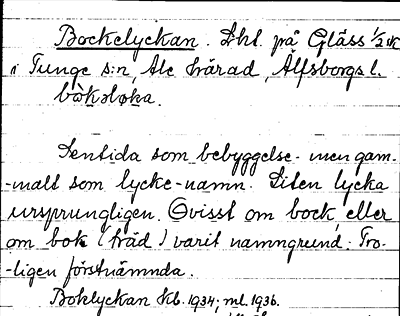 Bockelyckan. Lht. på Gläss 1/2 sk
i Tunge s:n, Ale härad, Älfsborgs l.
bòkəlỳka.
Sentida som bebyggelse- men gam-
-malt som lycke-namn. Liten lycka
ursprungligen. Ovisst om bock eller
om bok (träd) varit namngrund. Tro-
-ligen förstnämnda.
Boklyckan Kb. 1934; ml. 1936.